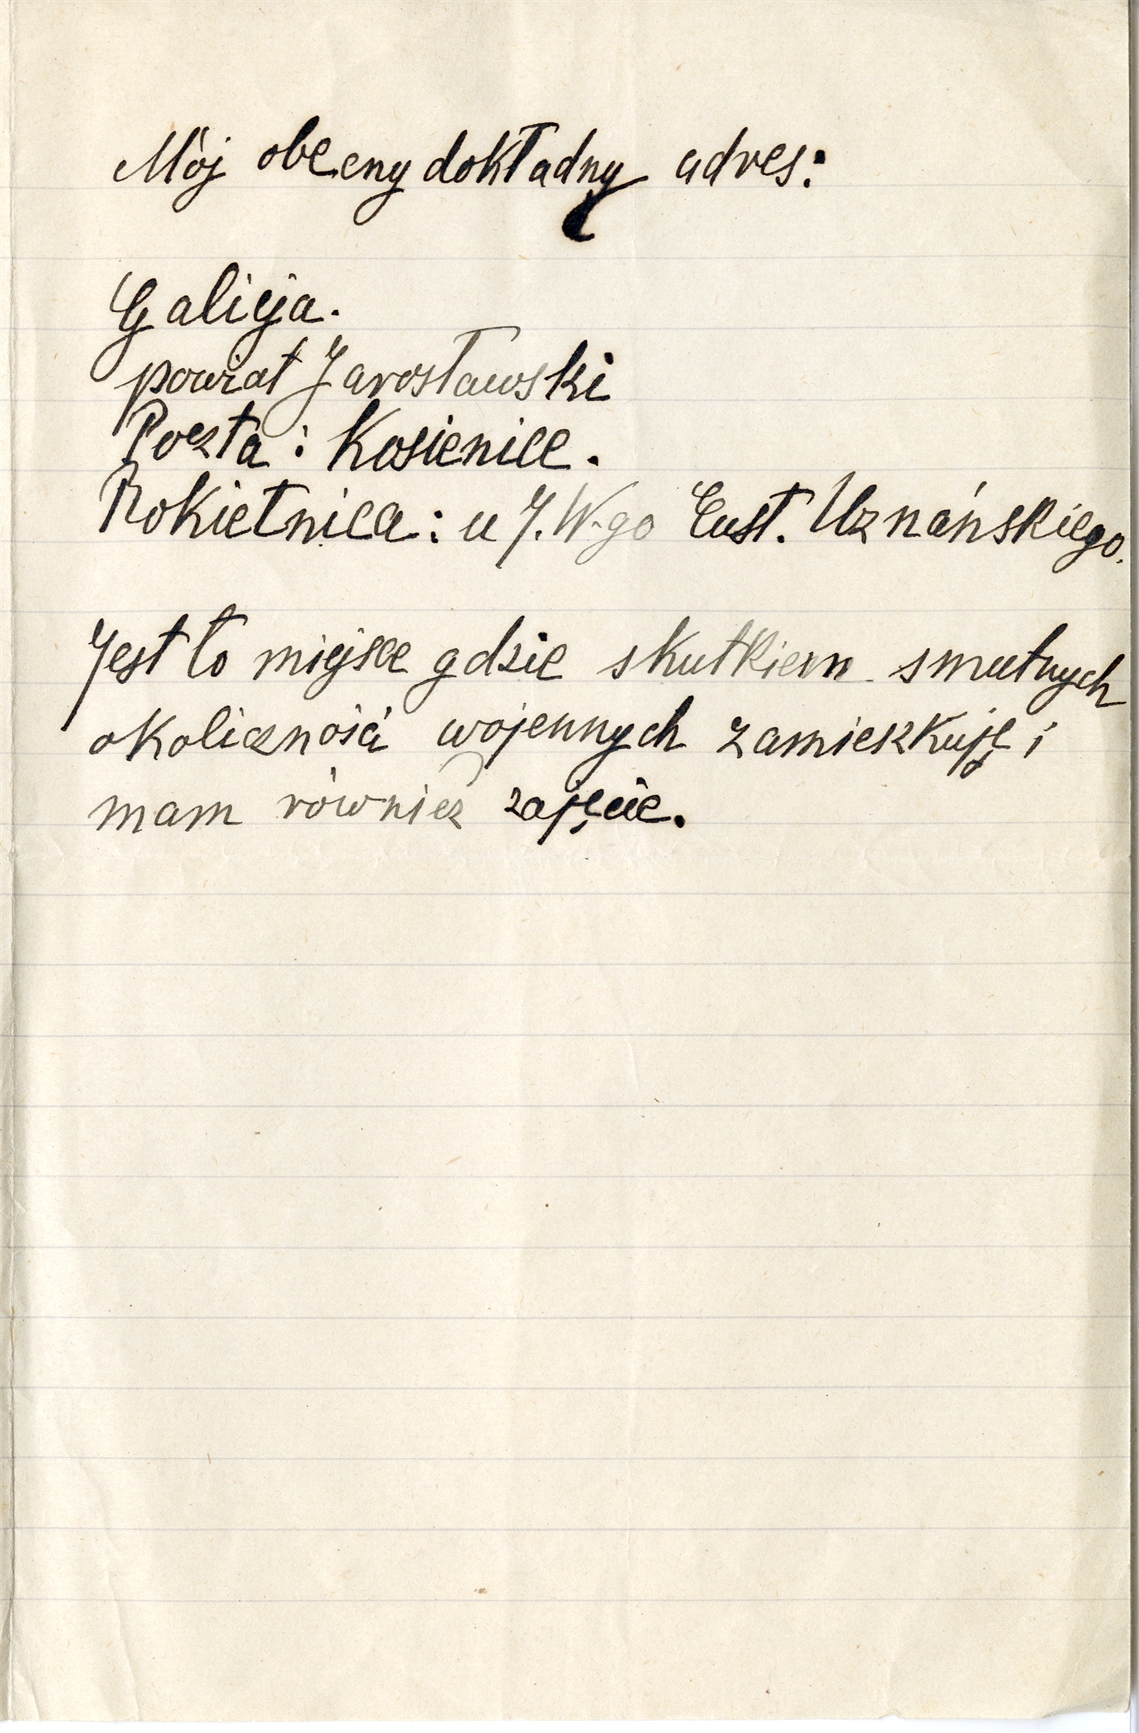 Mój obecny dokładny adres:
Galicja.
powiat Jarosławski
Poczta: Kosienice.
Rokietnica: u J.W-go Eust. Uznańskiego.
Jest to miejsce gdzie skutkiem smutnych
okoliczności wojennych zamieszkuję i
mam również zajęcie.